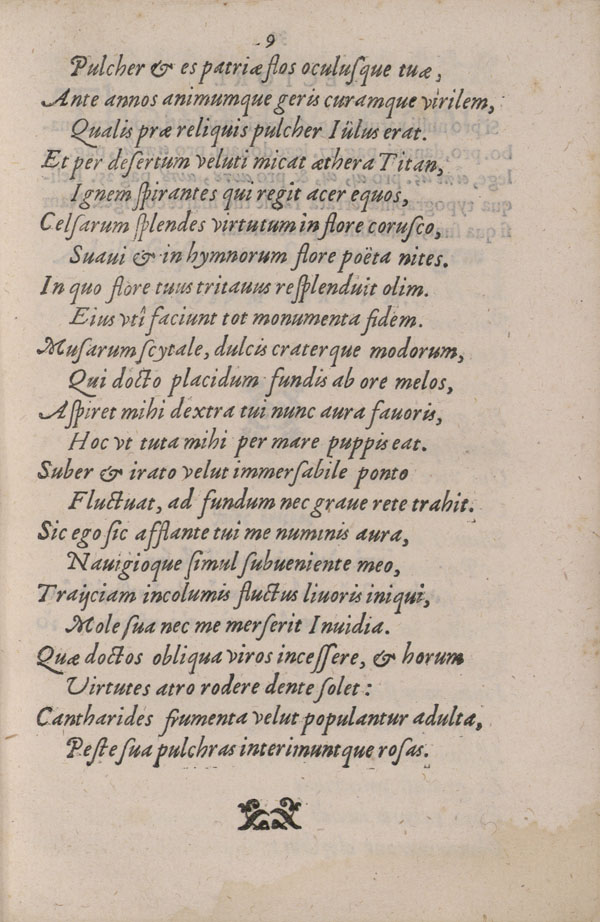 9
Pulcher & es patriæ flos oculuſque tuæ,
Ante annos animumque geris curamque virilem,
Qualis præ reliquis pulcher Iülus erat.
Et per deſertum veluti micat æthera Titan,
Ignem ſpirantes qui regit acer equos,
Celſarum ſplendes virtutum in flore coruſco,
Suaui & in hymnorum flore poëta nites.
In quo flore tuus tritauus reſplenduit olim.
Eius vtî faciunt tot monumenta fidem.
Muſarum ſcytale, dulcis craterque modorum,
Qui docto placidum fundis ab ore melos,
Aſpiret mihi dextra tui nunc aura fauoris,
Hoc vt tuta mihi per mare puppis eat.
Suber & irato velut immerſabile ponto
Fluctuat, ad fundum nec graue rete trahit.
Sic ego ſic afflante tui me numinis aura,
Nauigioque ſimul ſubueniente meo,
Traijciam incolumis fluctus liuoris iniqui,
Mole ſua nec me merſerit Inuidia.
Quæ doctos obliqua viros inceſſere, & horum
Virtutes atro rodere dente ſolet:
Cantharides frumenta velut populantur adulta,
Peſte ſua pulchras interimuntque roſas.